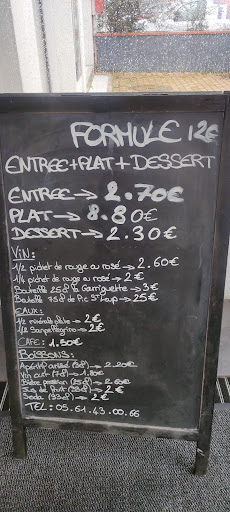 FORMULE 12€
ENTREE+PLAT+DESSERT
ENTREE→ 2.70€
PLAT→ 8.80€
DESSERT→ 2.30€
VIN:
1/2 pichet de rouge ou rosé → 2.60€
1/4 pichet de rouge ou rosé → 2€
Bouteille 25cl la Garriguette → 3€
Bouteille 75cl de Pic St Loup → 25€
EAUX:
1/2 minérale plate → 2€
1/2 San pellegrino → 2€
CAFE: 1.50€
BOISSONS:
Apéritif anisé (2cl) → 2.20€
Vin cuit (7cl) → 1.80€
Bière pression (25cl) → 2.60€
Jus de fruit (33cl) → 2€
Soda (33cl) → 2€
TEL: 05.61.43.00.66